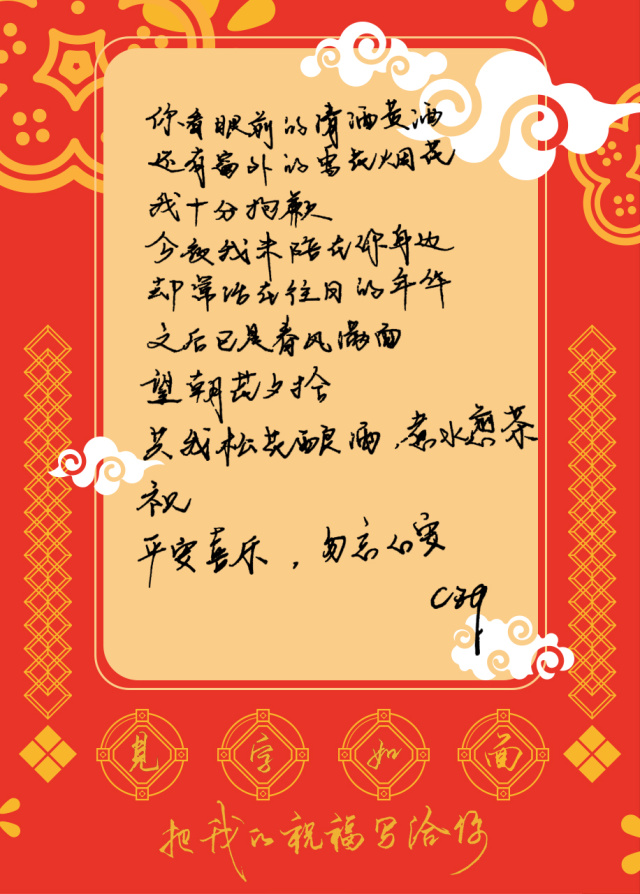 你看眼前的清酒黄酒
还有窗外的雪花烟花
我十分抱歉
今夜我未陪在你身边
却常活在往日的年华
之后已是春风满面
望朝花夕拾
共我松花酿酒，煮水煎茶
祝
平安喜乐，勿忘心安
見字如面
把我的祝福写给你